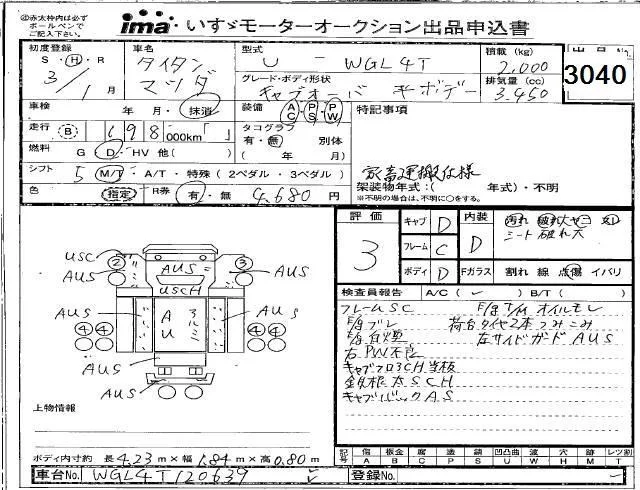 赤太枠内は必ず
ボールペンで
ご記入下さい。
ima いすゞモーターオークション出品申込書
初度登録 S H・R 3/1月
車名 タイタン マツダ
型式 U - WGL4T
積載 (kg) 2,000
排気量 (cc) 3,450
出品No. 3040
グレード・ボディ形状
車検 年 月・抹消
装備 AC PS PW
特記事項
走行 B 198 000km「 」
タコグラフ 有・無 別体
( 年 月)
燃料 G・D・HV 他( )
シフト 5 M/T・A/T・特殊 (2ペダル・3ペダル)
家畜運搬仕様
架装物年式:( 年式)・不明
※不明の場合は、不明に○をする。
色 指定 R券 有・無 9,680円
評価 3
キャブ D
フレーム C
ボディ D
内装 D
汚れ 破れ大
シート破れ大
Fガラス 割れ 線 点傷 イバリ
検査員報告 A/C( ✓ ) B/T( )
フレームSC
F/g T/M オイルモレ
F/gブレ
荷台タイヤ2本つみこみ
F/g白煙
左サイドガード AUS
右PW不良
キャブフロ3CH当板
SCH
キャブバック AS
USC
AUS
2
3
AUS
AUS
USCH
AUS
AUS
AU
4 4
4 4
AUS
AUS
上物情報
ボディ内寸約 長 4.23m×幅 1.84m×高 0.80m
記号 傷 A 板金 B 腐 C 塗 P 錆 S 凹凸凹曲 U 波 W 穴 H 跡 M レツ割 T
車台No. WGL4T120639
登録No.